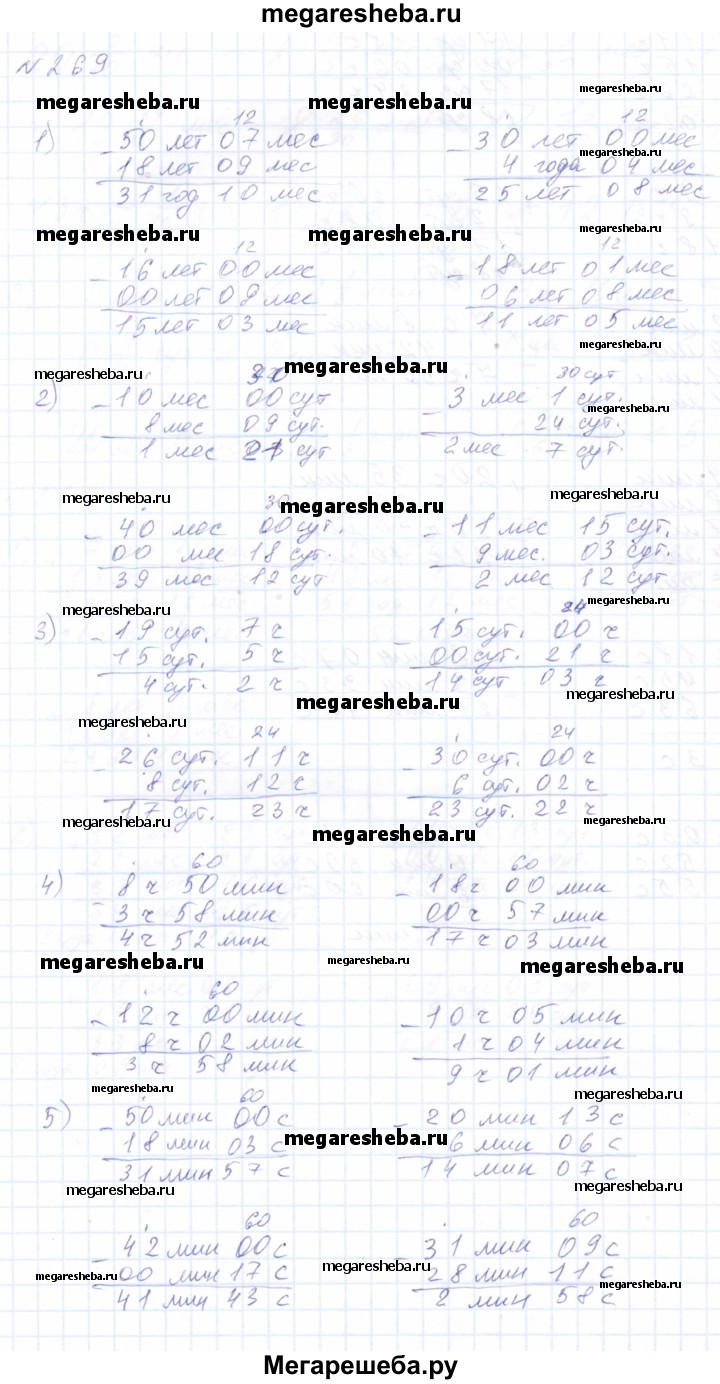 megaresheba.ru
N 269
megaresheba.ru megaresheba.ru megaresheba.ru
12 12
1) - 50 лет 07 мес - 30 лет 00 мес
megaresheba.ru
18 лет 09 мес 4 года 04 мес
31 год 10 мес 25 лет 08 мес
megaresheba.ru megaresheba.ru megaresheba.ru
12 12
- 16 лет 00 мес - 18 лет 01 мес
00 лет 09 мес 06 лет 08 мес
15 лет 03 мес 11 лет 05 мес
megaresheba.ru
megaresheba.ru megaresheba.ru
30 30 сут
2) - 10 мес 00 сут - 3 мес 1 сут.
megaresheba.ru
8 мес 09 сут. 24 сут.
1 мес 21 сут 2 мес 7 сут.
megaresheba.ru megaresheba.ru megaresheba.ru
30
- 40 мес 00 сут. - 11 мес 15 сут.
00 мес 18 сут. 9 мес. 03 сут.
39 мес 12 сут 2 мес 12 сут
megaresheba.ru megaresheba.ru
24
3) - 19 сут. 7 ч - 15 сут. 00 ч
15 сут. 5 ч 00 сут. 21 ч
4 сут. 2 ч 14 сут 03 ч
megaresheba.ru megaresheba.ru
megaresheba.ru
24 24
- 26 сут. 11 ч - 30 сут. 00 ч
8 сут. 12 ч 6 сут. 02 ч
17 сут. 23 ч 23 сут. 22 ч
megaresheba.ru megaresheba.ru megaresheba.ru
60 60
4) - 8 ч 50 мин - 18 ч 00 мин
3 ч 58 мин 00 ч 57 мин
4 ч 52 мин 17 ч 03 мин
megaresheba.ru megaresheba.ru megaresheba.ru
60
- 12 ч 00 мин - 10 ч 05 мин
8 ч 02 мин 1 ч 04 мин
3 ч 58 мин 9 ч 01 мин
megaresheba.ru megaresheba.ru
60
5) - 50 мин 00 с - 20 мин 13 с
18 мин 03 с 6 мин 06 с
megaresheba.ru
31 мин 57 с 14 мин 07 с
megaresheba.ru megaresheba.ru
60 60
- 42 мин 00 с - 31 мин 09 с
megaresheba.ru megaresheba.ru megaresheba.ru
00 мин 17 с 28 мин 11 с
41 мин 43 с 2 мин 58 с
Мегарешеба.ру